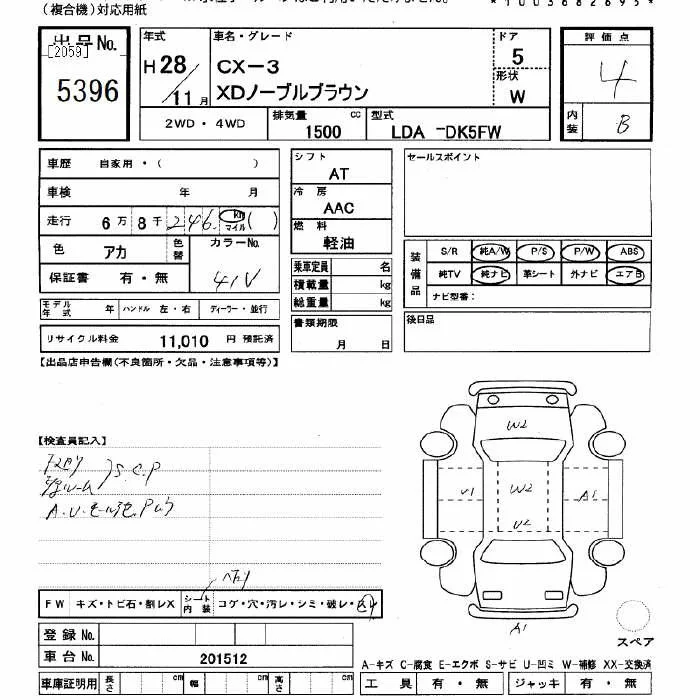 (複合機)対応用紙
*1003682695*
出品No.
[2059]
5396
年式
H28/11月
車名・グレード
CX-3
XDノーブルブラウン
ドア
5
形状
W
2WD・4WD
排気量 cc
1500
型式
LDA -DK5FW
評価点
4
内装
B
車歴 自家用・( )
車検 年 月
走行 6万 8千 246 km マイル ( )
色 アカ 色替 カラーNo.
41V
保証書 有・無
モデル年式 年 ハンドル 左・右 ディーラー・並行
リサイクル料金 11,010 円 預託済
シフト
AT
冷房
AAC
燃料
軽油
乗車定員 名
積載量 kg
総重量 kg
書類期限
月 日
セールスポイント
装備品
S/R 純A/W P/S P/W ABS
純TV 純ナビ 革シート 外ナビ エアB
ナビ型番:
後日品
【出品店申告欄(不良箇所・欠品・注意事項等)】
【検査員記入】
S.C.P
W2
V1
W2
U2
A1
A1
FW キズ・トビ石・割レX シート内装 コゲ・穴・汚レ・シミ・破レ・スレ
登録No.
車台No. 201512
車庫証明用 長さ cm 幅 cm 高さ cm
スペア
A-キズ C-腐食 E-エクボ S-サビ U-凹ミ W-補修 XX-交換済
工具 有・無 ジャッキ 有・無